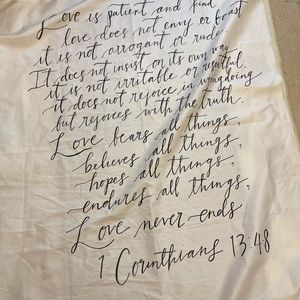 Love is patient and kind
love does not envy or boast
it is not arrogant or rude.
It does not insist on its own way
it is not irritable or resentful.
it does not rejoice in wrongdoing
but rejoices with the truth.
Love bears all things,
believes all things,
hopes all things,
endures all things,
Love never ends,
1 Corinthians 13:48